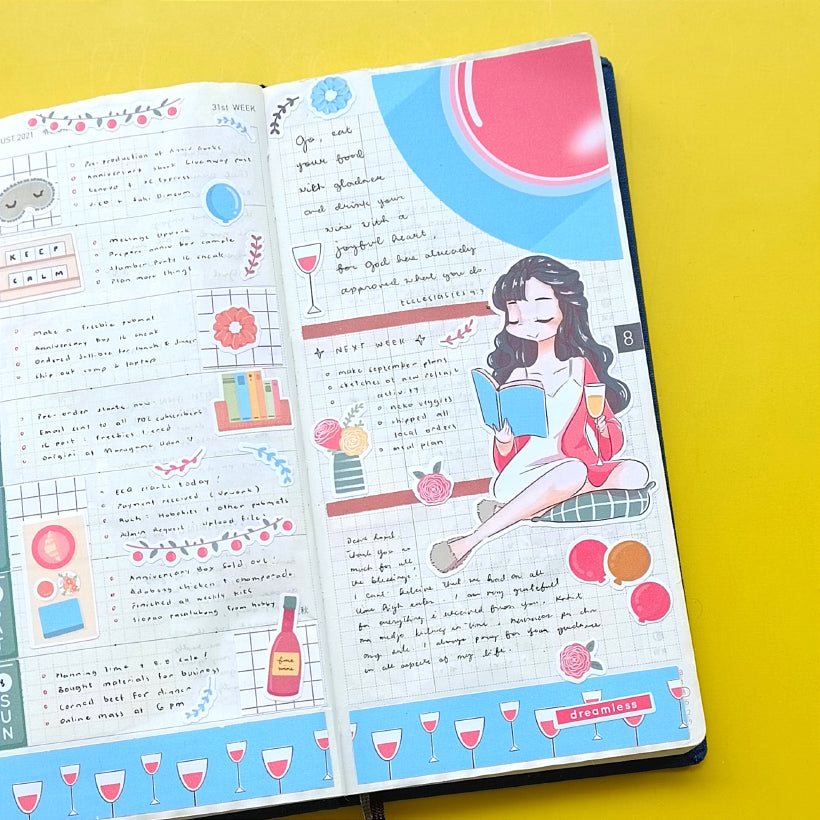 UST 2021
31st WEEK
Pre-production of Anniv Books
Anniversary shoot Giveaway post
KEEP
CALM
Message Upwork
Prepare anniv box sample
Slumber Party is sneak
Plan more things
Make a freebie pubmat
Anniversary Box is sneak
Ordered Jollibee for lunch & dinner
Ship out comp & laptop
Pre-order starts now
Email sent to all PDC subscribers
IG post : Freebies tiered
Origini at Marugame Udon
ECQ starts today!
Payment received (Upwork)
Admin Request : Upload files
Anniversary Box sold out!
Adobong chicken & champorado
Finished all weekly kits
Siopao pasalubong from hubby
fine
wine
SUN
Planning time & 8.8 sale!
Bought materials for business
Corned beef for dinner
Online mass at 6 pm
Go, eat
your food
with gladness
and drink your
wine with a
joyful heart,
for God has already
approved what you do.
Ecclesiastes 9:7
8
NEXT WEEK
make september plans
sketches of new release
activity:
neko veggies
shipped all
local orders
meal plan
Dear Lord,
Thank you so
much for all
the blessings.
I can't believe that we had an all
time high sales. I am very grateful
for everything I received from you.
my side. I always pray for your guidance
in all aspects of my life.
dreamless